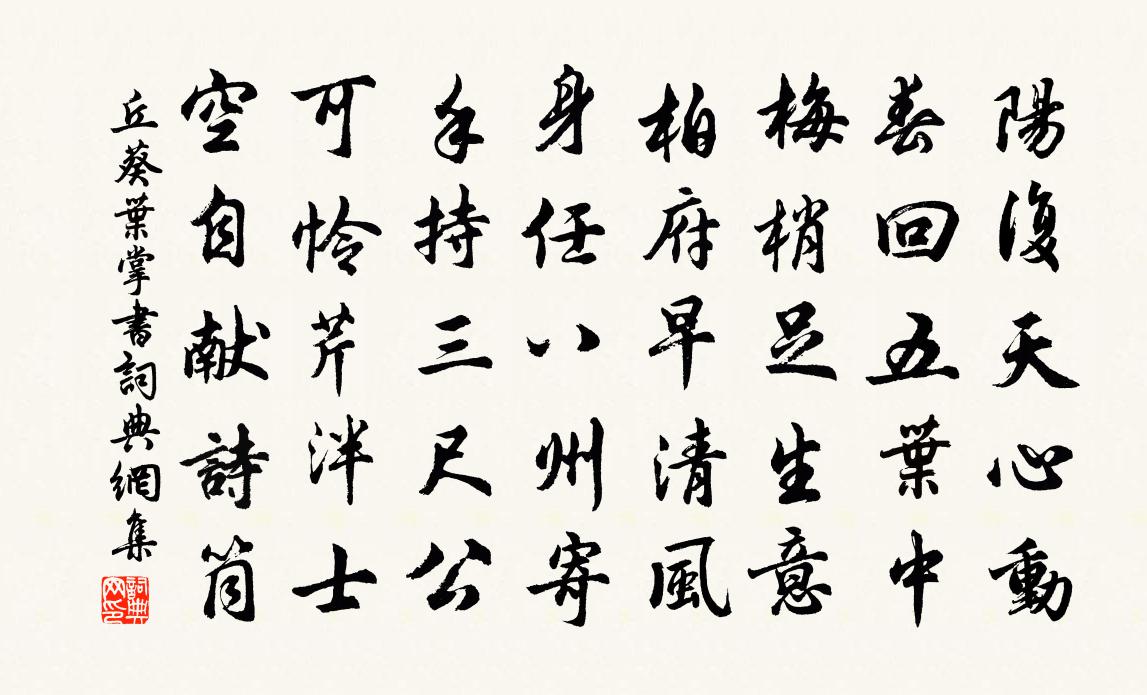 陽復天心動
春回五葉中
梅梢足生意
柏府早清風
身任八州寄
手持三尺公
可怜芹泮士
空自献詩筒
丘葵葉掌書詞典網集
詞典網印